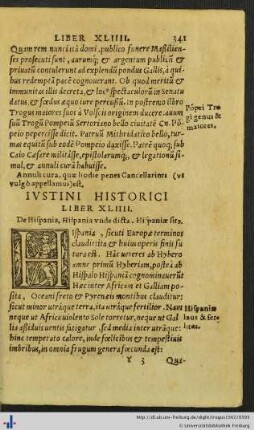 LIBER XLIIII. 341
Quam rem nunciatã domi, publico funere Massilien-
ses prosecuti sunt, aurumq; & argentum publicũ &
priuatũ contulerunt ad explendũ pondus Gallis, à qui-
bus redemptã pacẽ cognouerant. Ob quod meritũ &
immunitas illis decreta, & locꝰ spectaculorũ in senatu
datus, & fœdus æquo iure percussũ. In postremo libro
Trogus maiores suos à Volscis originem ducere: auum
suũ Trogum Pompeiũ Sertoriano bello ciuitatẽ Cn.
Põpeio percepisse dicit. Patruũ Mithridatico bello, tur-
mas equitũ sub eodẽ Pompeio duxisse. Patrẽ quoq; sub
Caio Cæsare militasse, epistolarumq;, & legationũ si-
mul, & annuli curã habuisse.
Põpei Tro
gi genus &
maiores.
Annuli cura, quæ hodie penes Cancellarios (vt
vulgò appellamus) est.
IVSTINI HISTORICI
LIBER XLIIII.
De Hispania, Hispania vnde dicta. Hispaniæ situs.
HIspania, sicuti Europæ terminos
claudit, ita & huius operis finis fu
tura est. Hãc veteres ab Hybero
amne primũ Hyberiam, postea ab
Hispalo Hispaniã cognominauerũt
Hæc inter Africam et Galliam po-
sita, Oceani freto & Pyrenæis montibus clauditur:
sicut minor vtráque terra, ita vtráque fertilior. Nam
neque vt Africa violento Sole torretur, neque vt Gal
lia assiduis ventis fatigatur, sed media inter vtráque:
hinc temperato calore, inde fœlicibus & tempestiuis
imbribus, in omnia frugum genera fœcunda est:
Hispaniæ
Y 3 Quæ-
© Universitätsbibliothek Freiburg